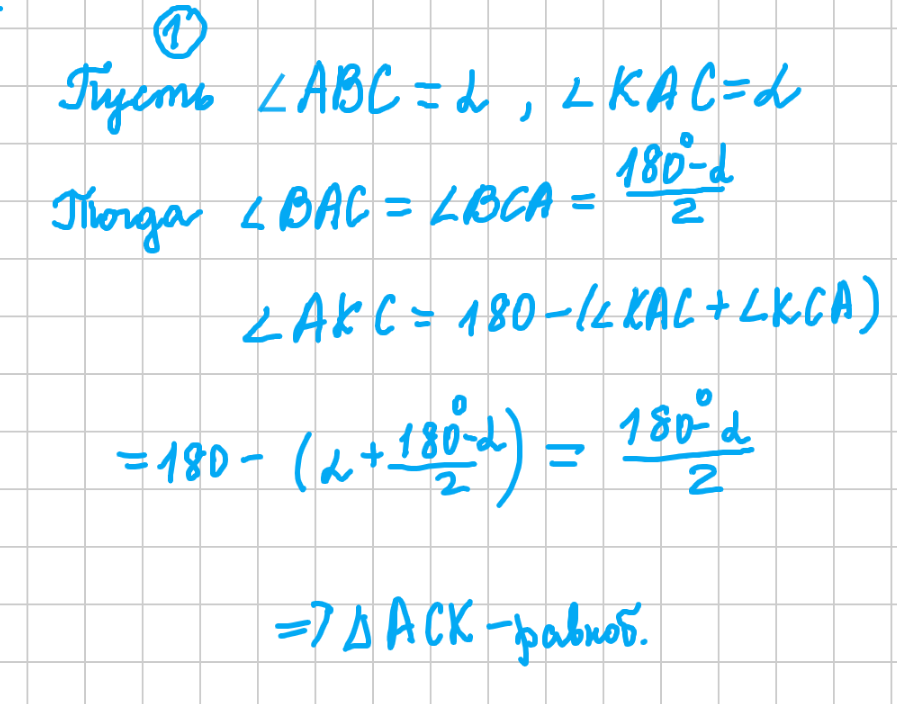 1
Пусть ∠ABC = α, ∠KAC = α
Тогда ∠BAC = ∠BCA = (180° - α)/2
∠AKC = 180 - (∠KAC + ∠KCA)
= 180 - (α + (180° - α)/2) = (180° - α)/2
=> △ACK - равноб.